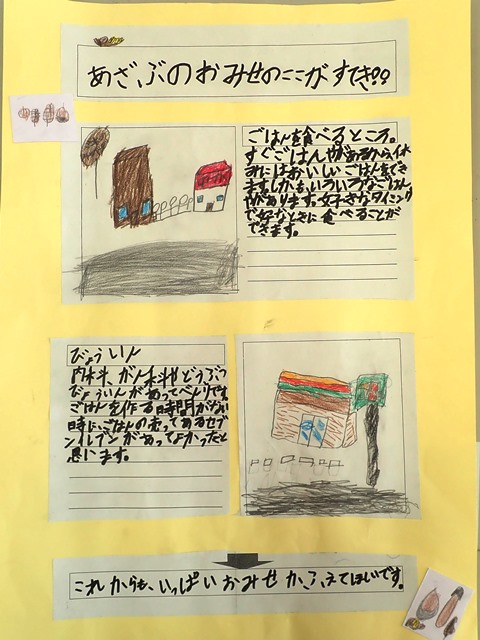 あざぶのおみせのここがすてき!!
ごはんを食べるところ。
すぐごはんやがあるから休
みにはおいしいごはん
ます。しかも、いろいろなごはん
やがあります。好きなタイミング
で好なときに食べることが
できます。
びょういん
内科、がん科やどうぶつ
びょういんがあってべんりです。
ごはんを作る時間がない
時にごはんの売ってあるセブ
ンイレブンがあってよかったと
思います。
これからも、いっぱいおみせがふえてほしいです。